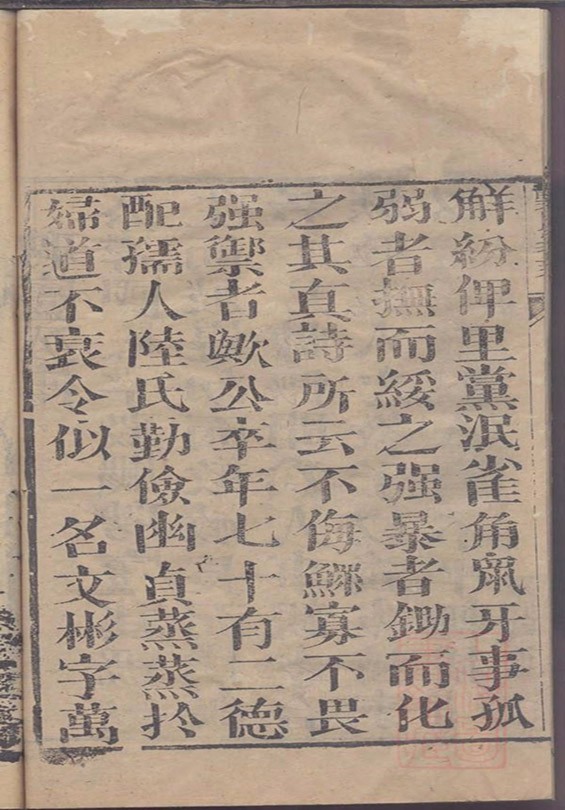 解紛俾里黨泯雀角䑕牙事孤
弱者撫而綏之强暴者鋤而化
之其真詩所云不侮鰥寡不畏
强禦者歟公卒年七十有二德
配孺人陸氏勤儉幽貞蒸蒸扵
婦道不衰令似一名文彬字萬